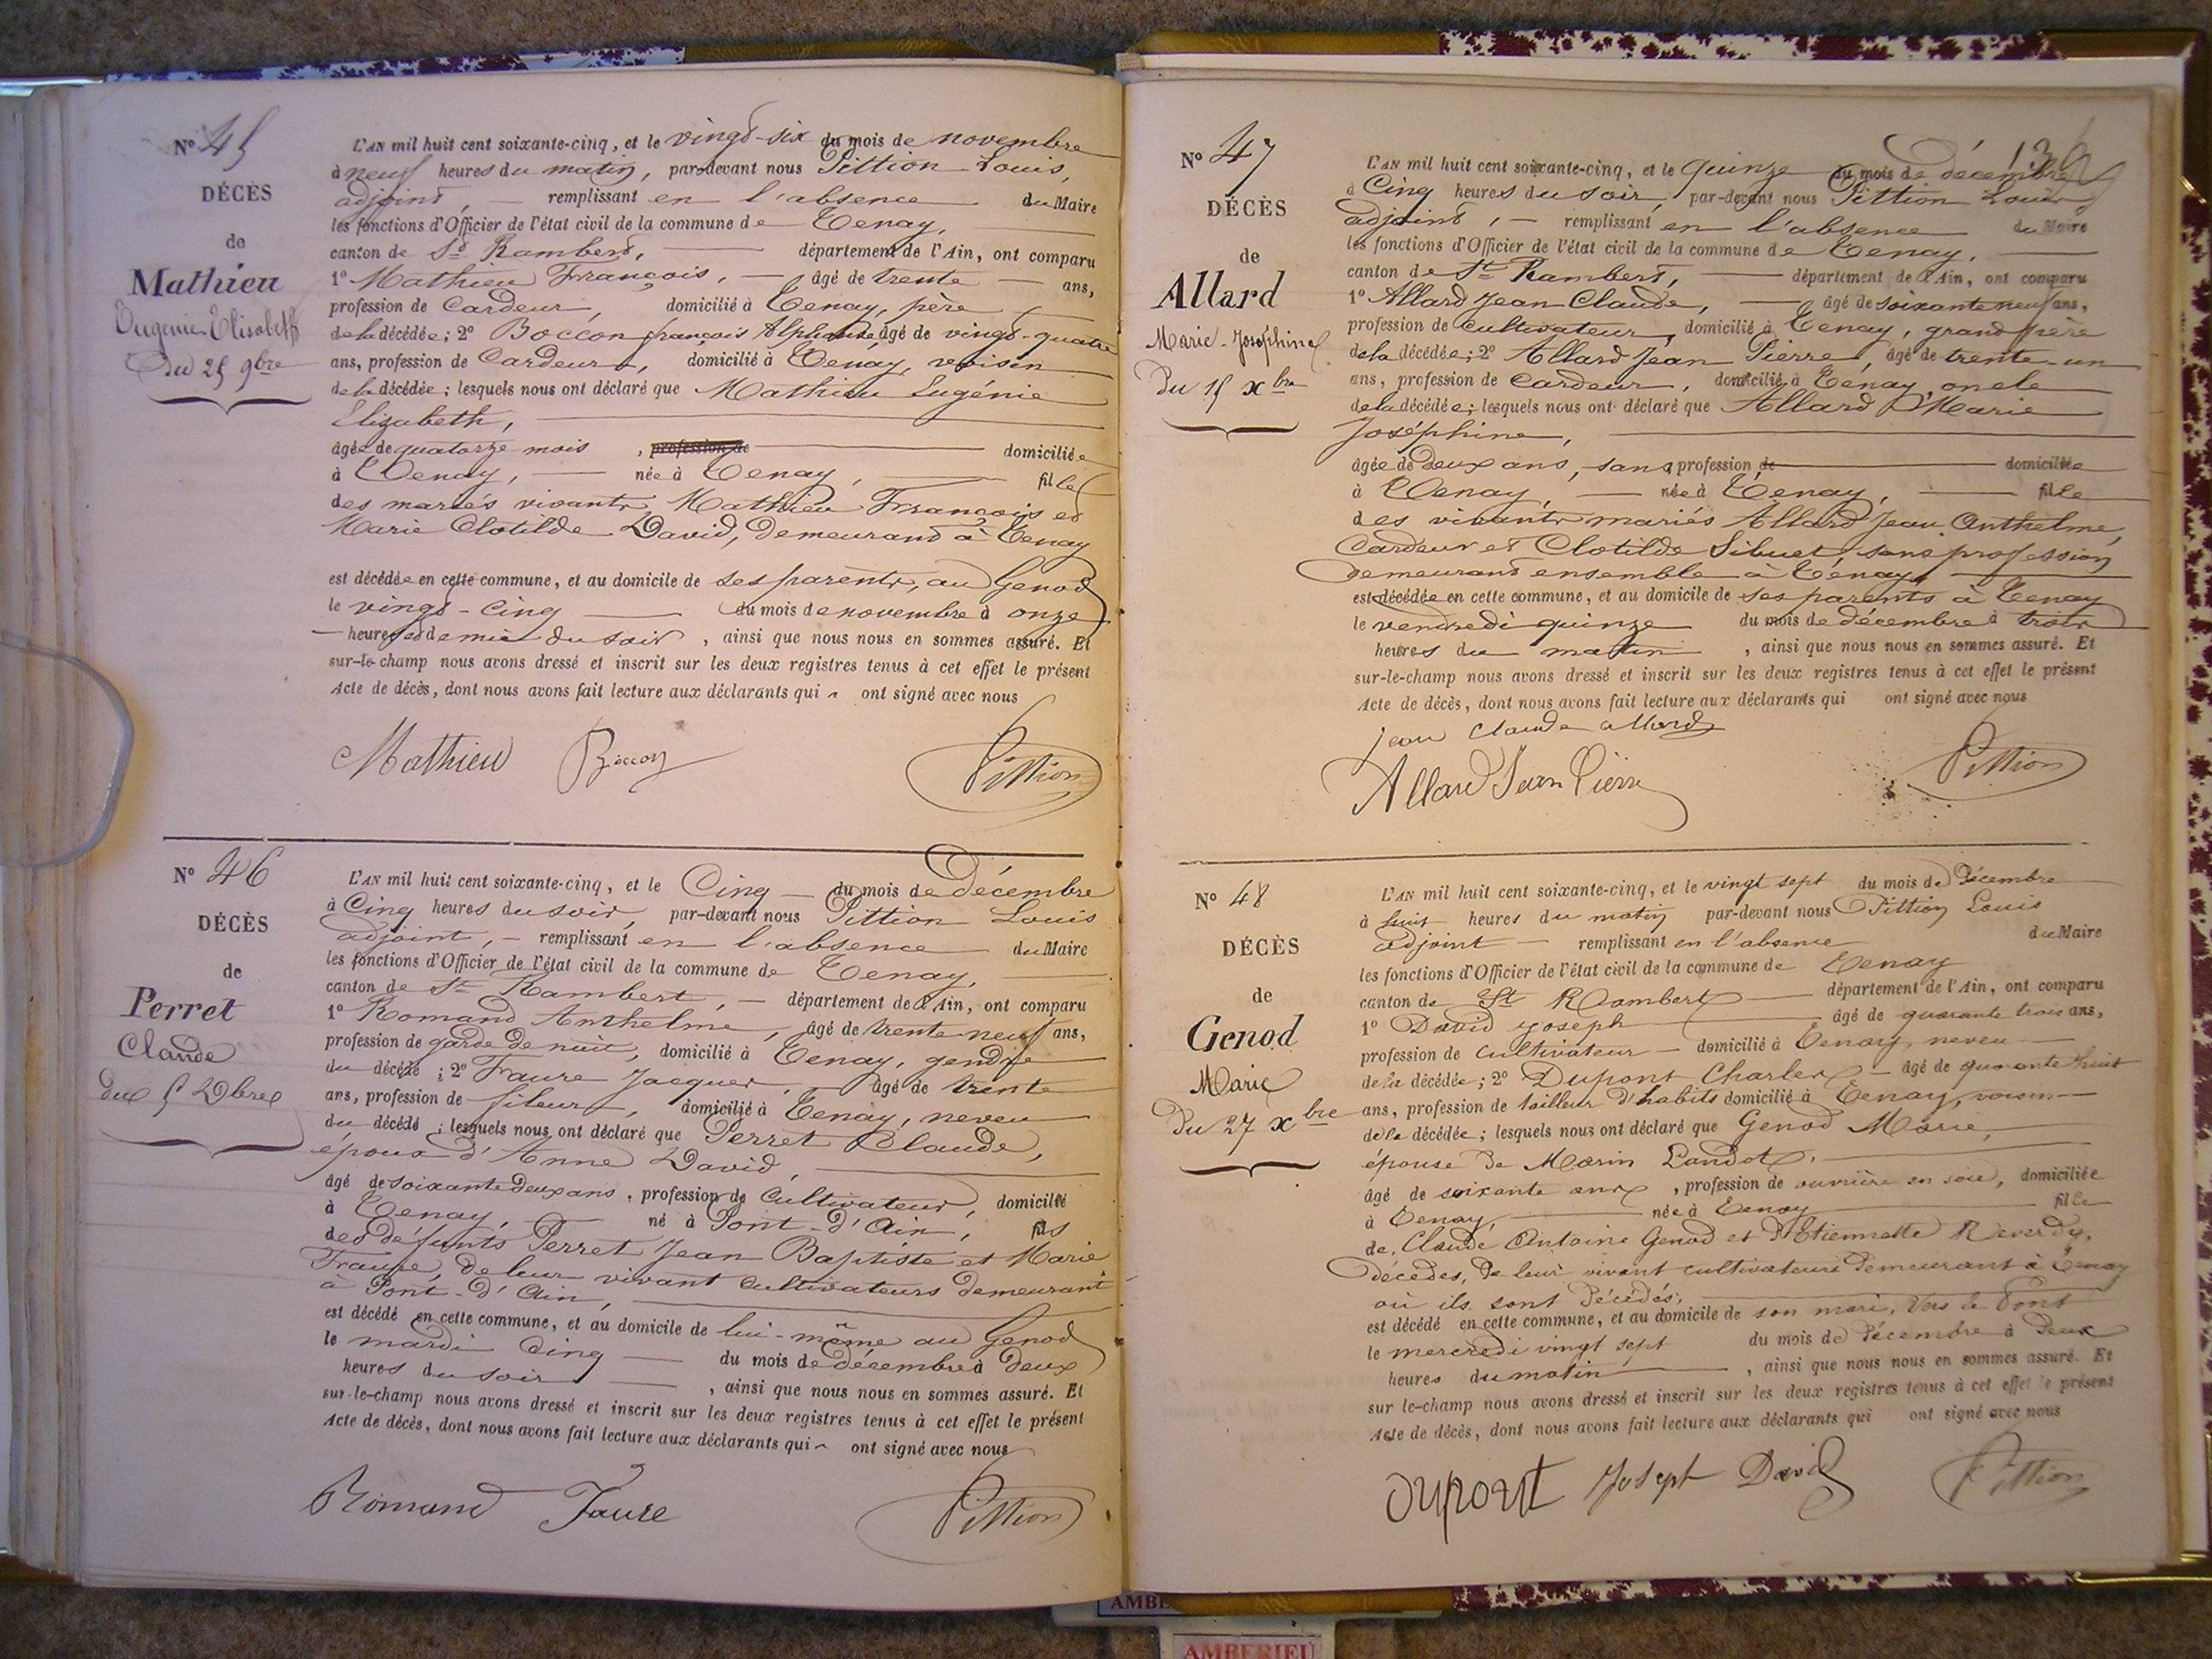 N° 45
DÉCÈS
de
Mathieu
Eugénie-Elisabeth
Du 25 9bre
L'AN mil huit cent soixante-cinq, et le vingt-six du mois de novembre
à neuf heures du matin, par-devant nous Pittion Louis,
adjoint, remplissant en l'absence du Maire
les fonctions d'Officier de l'état civil de la commune de Tenay,
canton de St Rambert, département de l'Ain, ont comparu
1° Mathieu François, âgé de trente ans,
profession de Cardeur, domicilié à Tenay, père
de la décédée; 2° Boccon françois Alphonse, âgé de vingt-quatre
ans, profession de Cardeur, domicilié à Tenay, voisin
de la décédée; lesquels nous ont déclaré que Mathieu Eugénie
Elizabeth,
âgée de quatorze mois, profession de domiciliée
à Tenay, née à Tenay, fille
des mariés vivants Mathieu François et
Marie Clotilde David, demeurand à Tenay
est décédée en cette commune, et au domicile de ses parents, au Genod
le vingt-cinq du mois de novembre à onze
heures et demie du soir, ainsi que nous nous en sommes assuré. Et
sur-le-champ nous avons dressé et inscrit sur les deux registres tenus à cet effet le présent
Acte de décès, dont nous avons fait lecture aux déclarants qui ont signé avec nous
Mathieu Boccon Pittion
N° 46
DÉCÈS
de
Perret
Claude
du 5 Xbre
L'AN mil huit cent soixante-cinq, et le Cinq du mois de Décembre
à Cinq heures du soir, par-devant nous Pittion Louis
adjoint, remplissant en l'absence du Maire
les fonctions d'Officier de l'état civil de la commune de Tenay,
canton de St Rambert, département de l'Ain, ont comparu
1° Romand Anthelme, âgé de trente neuf ans,
profession de garde de nuit, domicilié à Tenay, gendre
du décédé; 2° Faure Jacques, âgé de trente
ans, profession de fileur, domicilié à Tenay, neveu
du décédé; lesquels nous ont déclaré que Perret Claude,
époux d'Anne David,
âgé de soixante deux ans, profession de Cultivateur, domicilié
à Tenay, né à Pont-d'Ain, fils
des défunts Perret Jean Baptiste et Marie
Faure, de leur vivant cultivateurs demeurant
à Pont-d'Ain,
est décédé en cette commune, et au domicile de lui-même au Genod
le mardi cinq du mois de décembre à deux
heures du soir, ainsi que nous nous en sommes assuré. Et
sur-le-champ nous avons dressé et inscrit sur les deux registres tenus à cet effet le présent
Acte de décès, dont nous avons fait lecture aux déclarants qui ont signé avec nous
Romand Faure Pittion
N° 47
DÉCÈS
de
Allard
Marie-Joséphine
Du 15 Xbre
L'AN mil huit cent soixante-cinq, et le quinze du mois de décembre
à Cinq heures du soir, par-devant nous Pittion Louis
adjoint, remplissant en l'absence du Maire
les fonctions d'Officier de l'état civil de la commune de Tenay,
canton de St Rambert, département de l'Ain, ont comparu
1° Allard Jean Claude, âgé de soixante neuf ans,
profession de cultivateur, domicilié à Tenay, grand père
de la décédée; 2° Allard Jean Pierre, âgé de trente-un
ans, profession de cardeur, domicilié à Tenay, oncle
de la décédée; lesquels nous ont déclaré que Allard Marie
Joséphine,
âgée de deux ans, sans profession de domiciliée
à Tenay, née à Tenay, fille
des vivants mariés Allard Jean Anthelme,
Cardeur et Clotilde Sibuet, sans profession
demeurant ensemble à Ténay,
est décédée en cette commune, et au domicile de ses parents à Tenay
le vendredi quinze du mois de décembre à trois
heures du matin, ainsi que nous nous en sommes assuré. Et
sur-le-champ nous avons dressé et inscrit sur les deux registres tenus à cet effet le présent
Acte de décès, dont nous avons fait lecture aux déclarants qui ont signé avec nous
jean Claude allard
Allard Jean Pierre Pittion
N° 48
DÉCÈS
de
Genod
Marie
Du 27 Xbre
L'AN mil huit cent soixante-cinq, et le vingt sept du mois de Décembre
à huit heures du matin par-devant nous Pittion Louis
adjoint remplissant en l'absence du Maire
les fonctions d'Officier de l'état civil de la commune de Tenay
canton de St Rambert département de l'Ain, ont comparu
1° David Joseph âgé de quarante trois ans,
profession de cultivateur domicilié à Tenay, neveu
de la décédée; 2° Dupont Charles âgé de quarante huit
ans, profession de tailleur d'habits domicilié à Tenay, voisin
de la décédée; lesquels nous ont déclaré que Genod Marie,
épouse de Marin Landot,
âgé de soixante ans, profession de ouvrière en soie, domiciliée
à Tenay, née à Tenay fille
de Claude Antoine Genod et d'Etiennette Reverdy,
décédés, de leur vivant cultivateurs demeurant à Tenay
où ils sont décédés,
est décédé en cette commune, et au domicile de son mari, vers le Pont
le mercredi vingt sept du mois de décembre à deux
heures du matin, ainsi que nous nous en sommes assuré. Et
sur le-champ nous avons dressé et inscrit sur les deux registres tenus à cet effet le présent
Acte de décès, dont nous avons fait lecture aux déclarants qui ont signé avec nous
Dupont Joseph David Pittion
AMBE
AMBERIEU